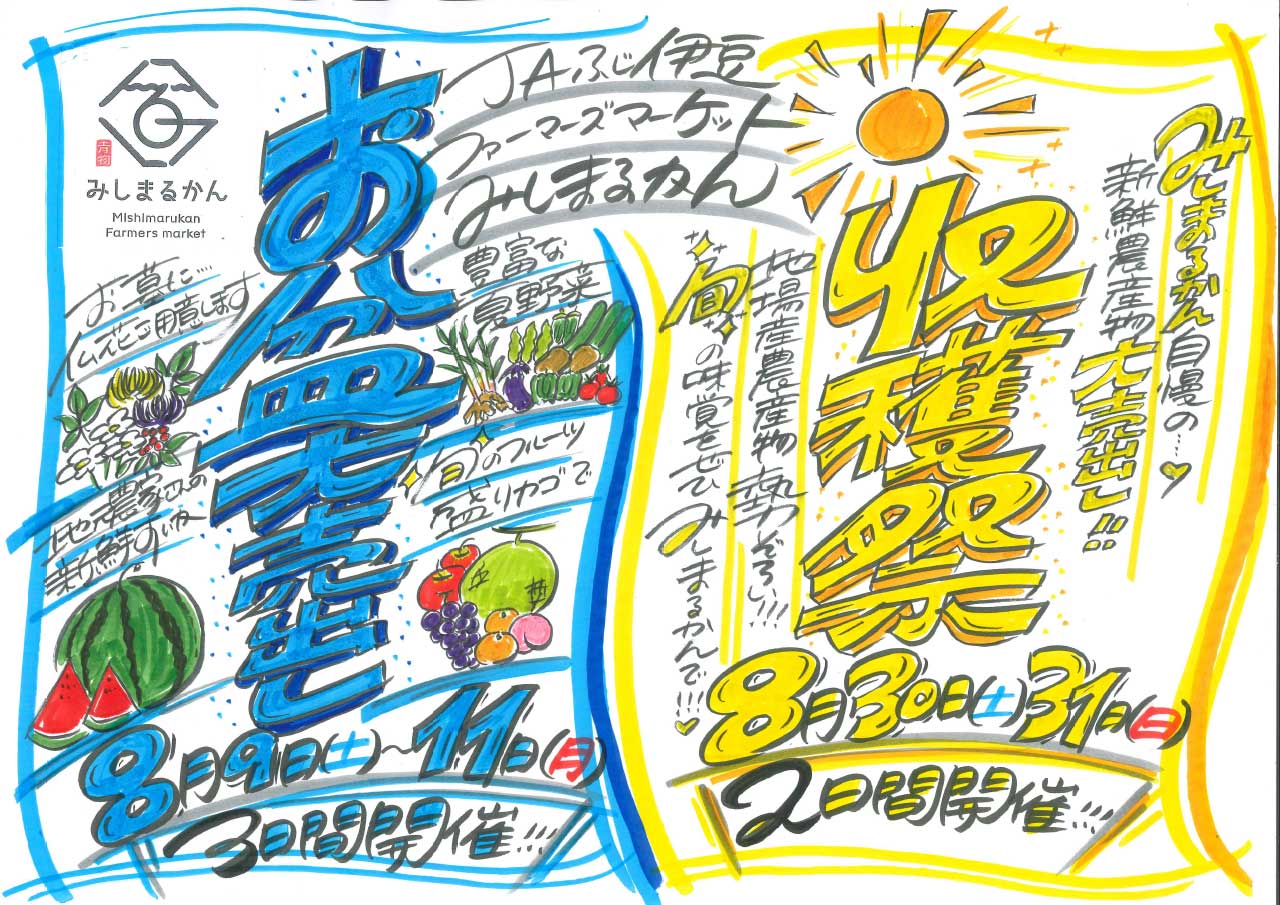 みしまるかん
Mishimarukan
Farmers market
JAふじ伊豆
ファーマーズマーケット
みしまるかん
おぼん大売出し
お墓に…
仏花ご用意します
豊富な
夏野菜
地元農家さんの
新鮮すいか
旬のフルーツ
盛りカゴで
8月9日(土)~11日(月)
3日間開催!!!
収穫祭
みしまるかん自慢の…
新鮮農産物大売出し!!
地場産農産物勢ぞろい!!!
旬の味覚をぜひみしまるかんで!!!
8月30日(土)31日(日)
2日間開催!!!